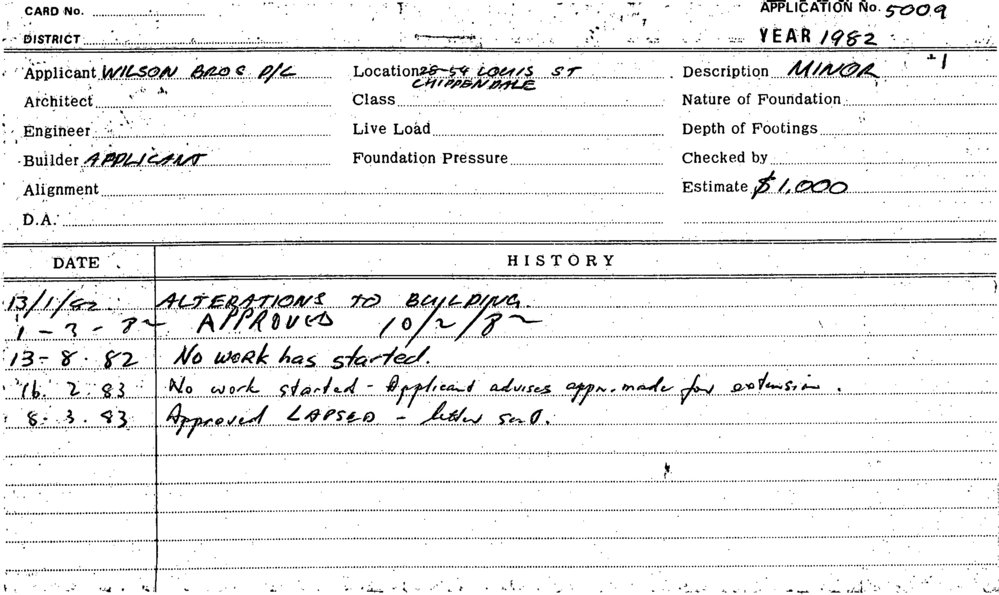 CARD No. APPLICATION No. 5009
DISTRICT YEAR 1982
Applicant WILSON BROS P/L Location 28-54 LOUIS ST Description MINOR
CHIPPENDALE
Architect Class Nature of Foundation
Engineer Live Load Depth of Footings
Builder APPLICANT Foundation Pressure Checked by
Alignment Estimate $1,000
D.A.
DATE HISTORY
13/1/82. ALTERATIONS TO BUILDING
1-3-82 APPROVED 10/2/82
13-8.82 No work has started.
16.2.83 No work started - Applicant advises appn. made for extension.
8.3.83 Approved LAPSED - letter sent.